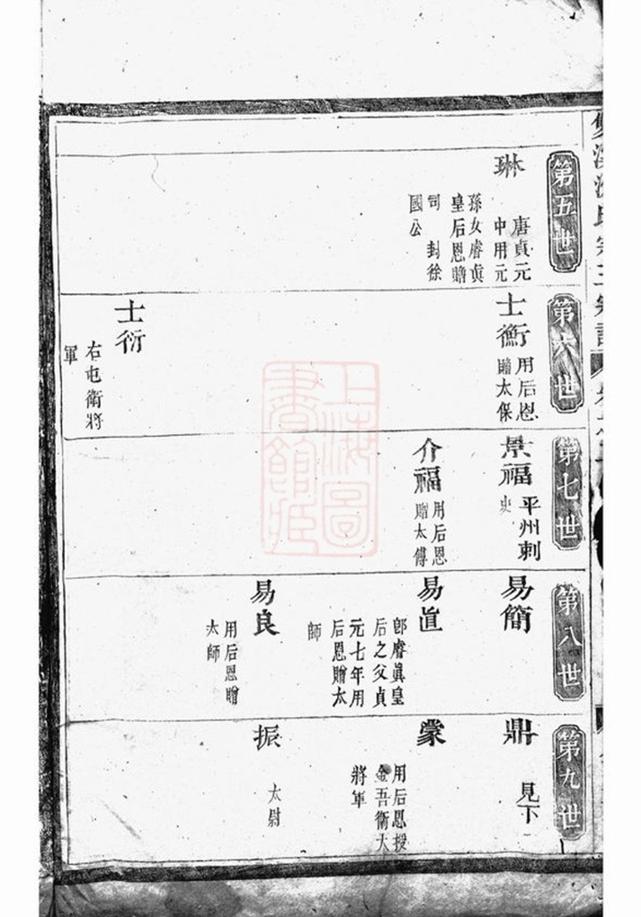 雙溪沈氏宗三
第五世
琳
唐貞元
中用元
孫女睿眞
皇后恩贈
司 封徐
國公
第六世
士衡
用后恩
贈太保
士衍
右屯衛將
軍
第七世
景福
平州刺
史
介福
用后恩
贈太傅
第八世
易簡
易直
卽睿眞皇
后之父貞
元七年用
后恩贈太
師
易良
用后恩贈
太師
第九世
鼎
見下
蒙
用后恩授
金吾衛大
將軍
振
太尉
上海圖
書館藏